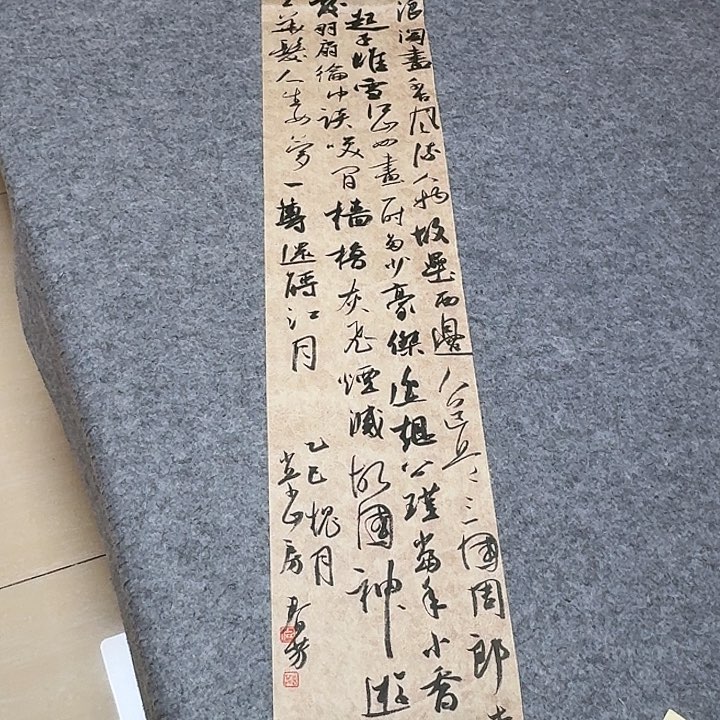 浪淘盡千古風流人物故壘西邊人道是三國周郎
起千堆雪江山如畫一時多少豪傑遥想公瑾當年小喬
發羽扇綸巾談笑間檣櫓灰飛煙滅故國神遊
華髮人生如夢一樽還酹江月
乙巳槐月
山房